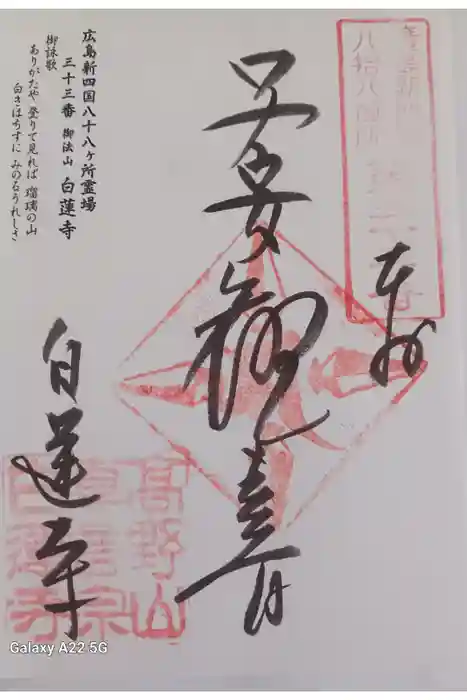 奉拝
子安観音
白蓮寺
高野山
真言宗
白蓮寺
広島新四国八十八ヶ所霊場
三十三番 御法山 白蓮寺
御詠歌
ありがたや 登りて見れば 瑠璃の山
白きはちすに みのるうれしさ
Galaxy A22 5G